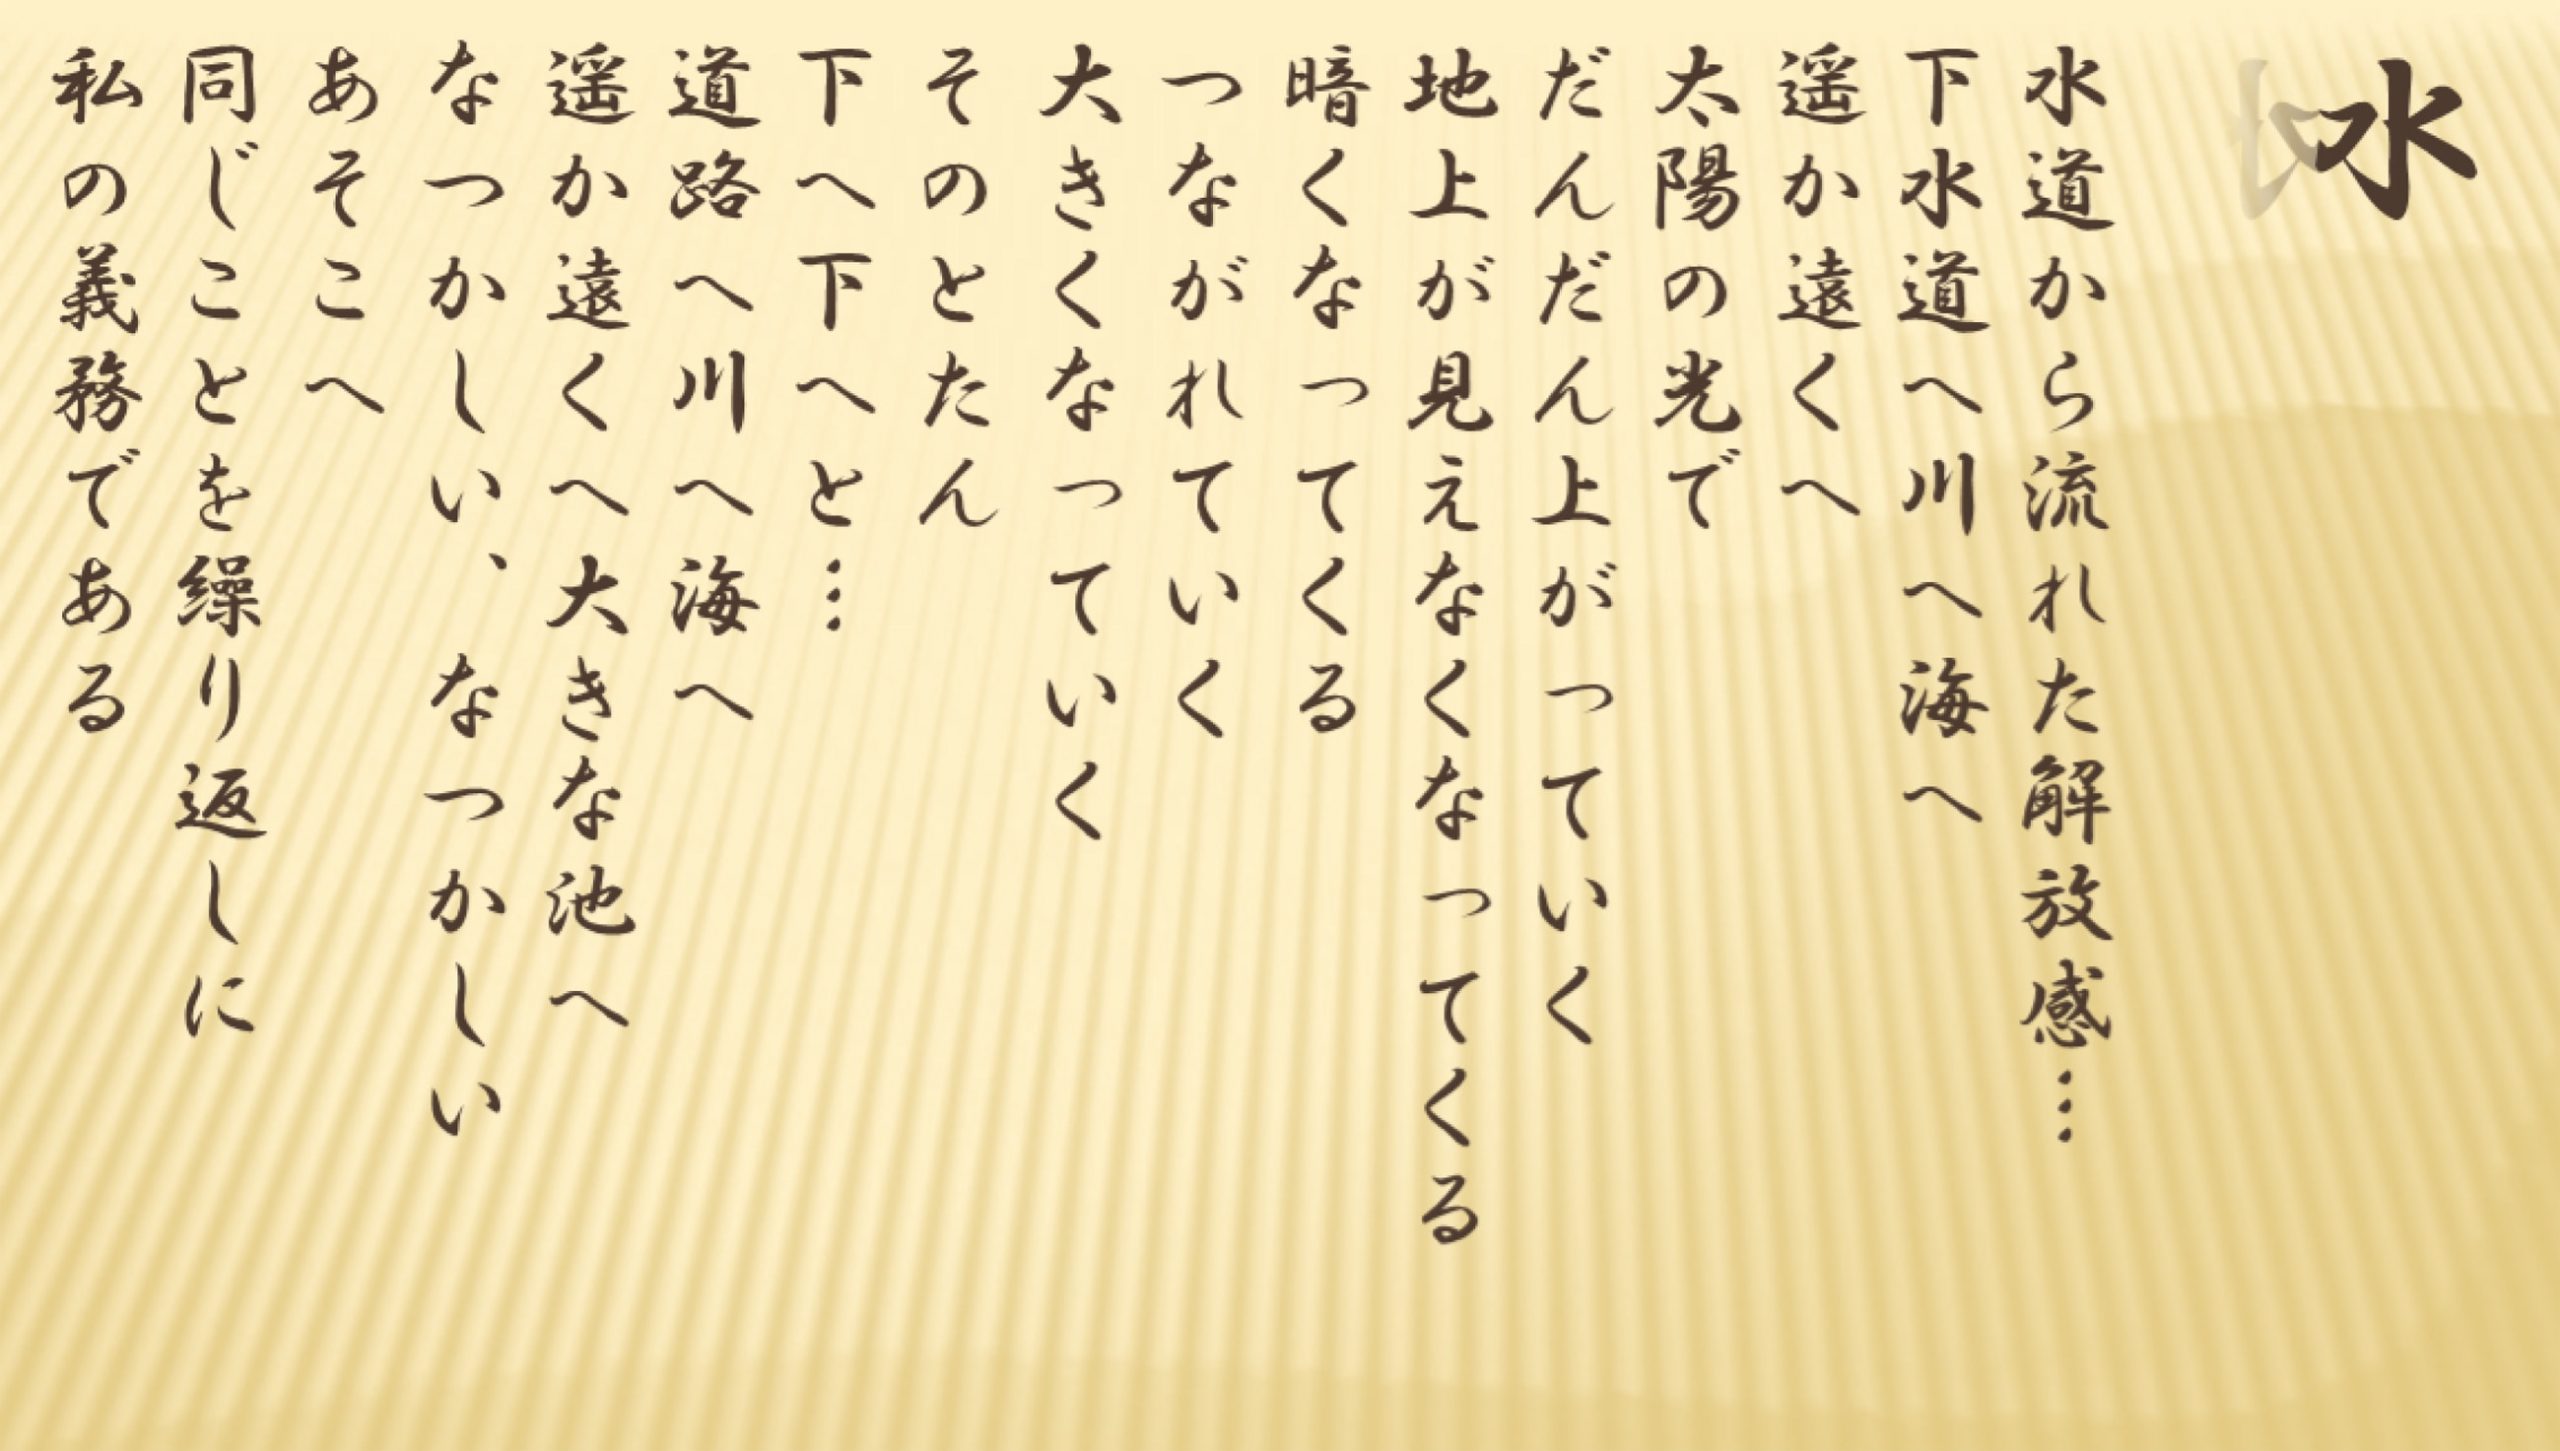 水
水道から流れた解放感…
下水道へ川へ海へ
遥か遠くへ
太陽の光で
だんだん上がっていく
地上が見えなくなってくる
暗くなってくる
つながれていく
大きくなっていく
そのとたん
下へ下へと…
道路へ川へ海へ
遥か遠くへ大きな池へ
なつかしい、なつかしい
あそこへ
同じことを繰り返しに
私の義務である